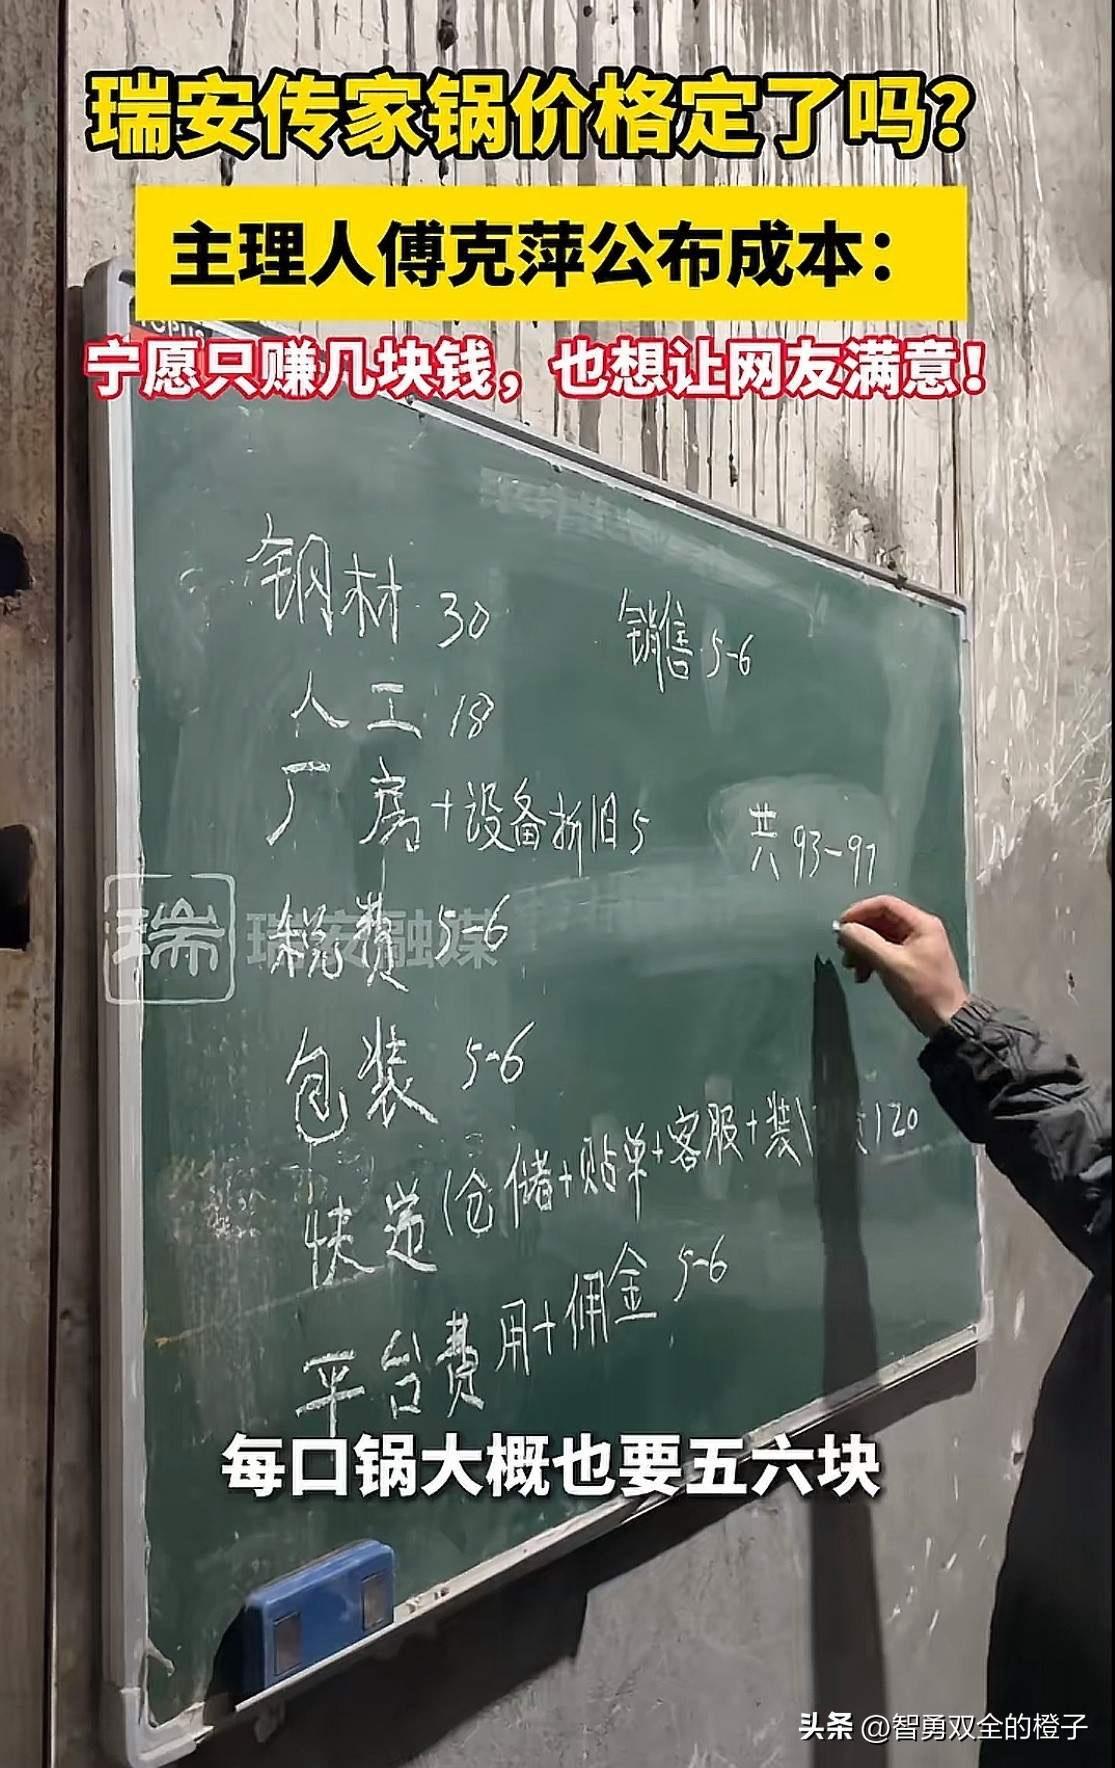 瑞安传家锅价格定了吗？
主理人傅克萍公布成本：
宁愿只赚几块钱，也想让网友满意！
钢材 30
销售 5-6
人工 18
厂房+设备折旧 5
共 93-97
税费 5-6
瑞
瑞安融媒
包装 5-6
快递(仓储+贴单+客服+装 20
平台费用+佣金 5-6
每口锅大概也要五六块
头条 @智勇双全的橙子